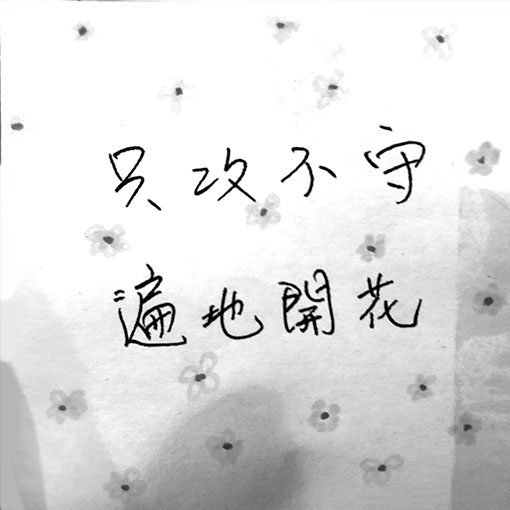 只攻不守
遍地開花